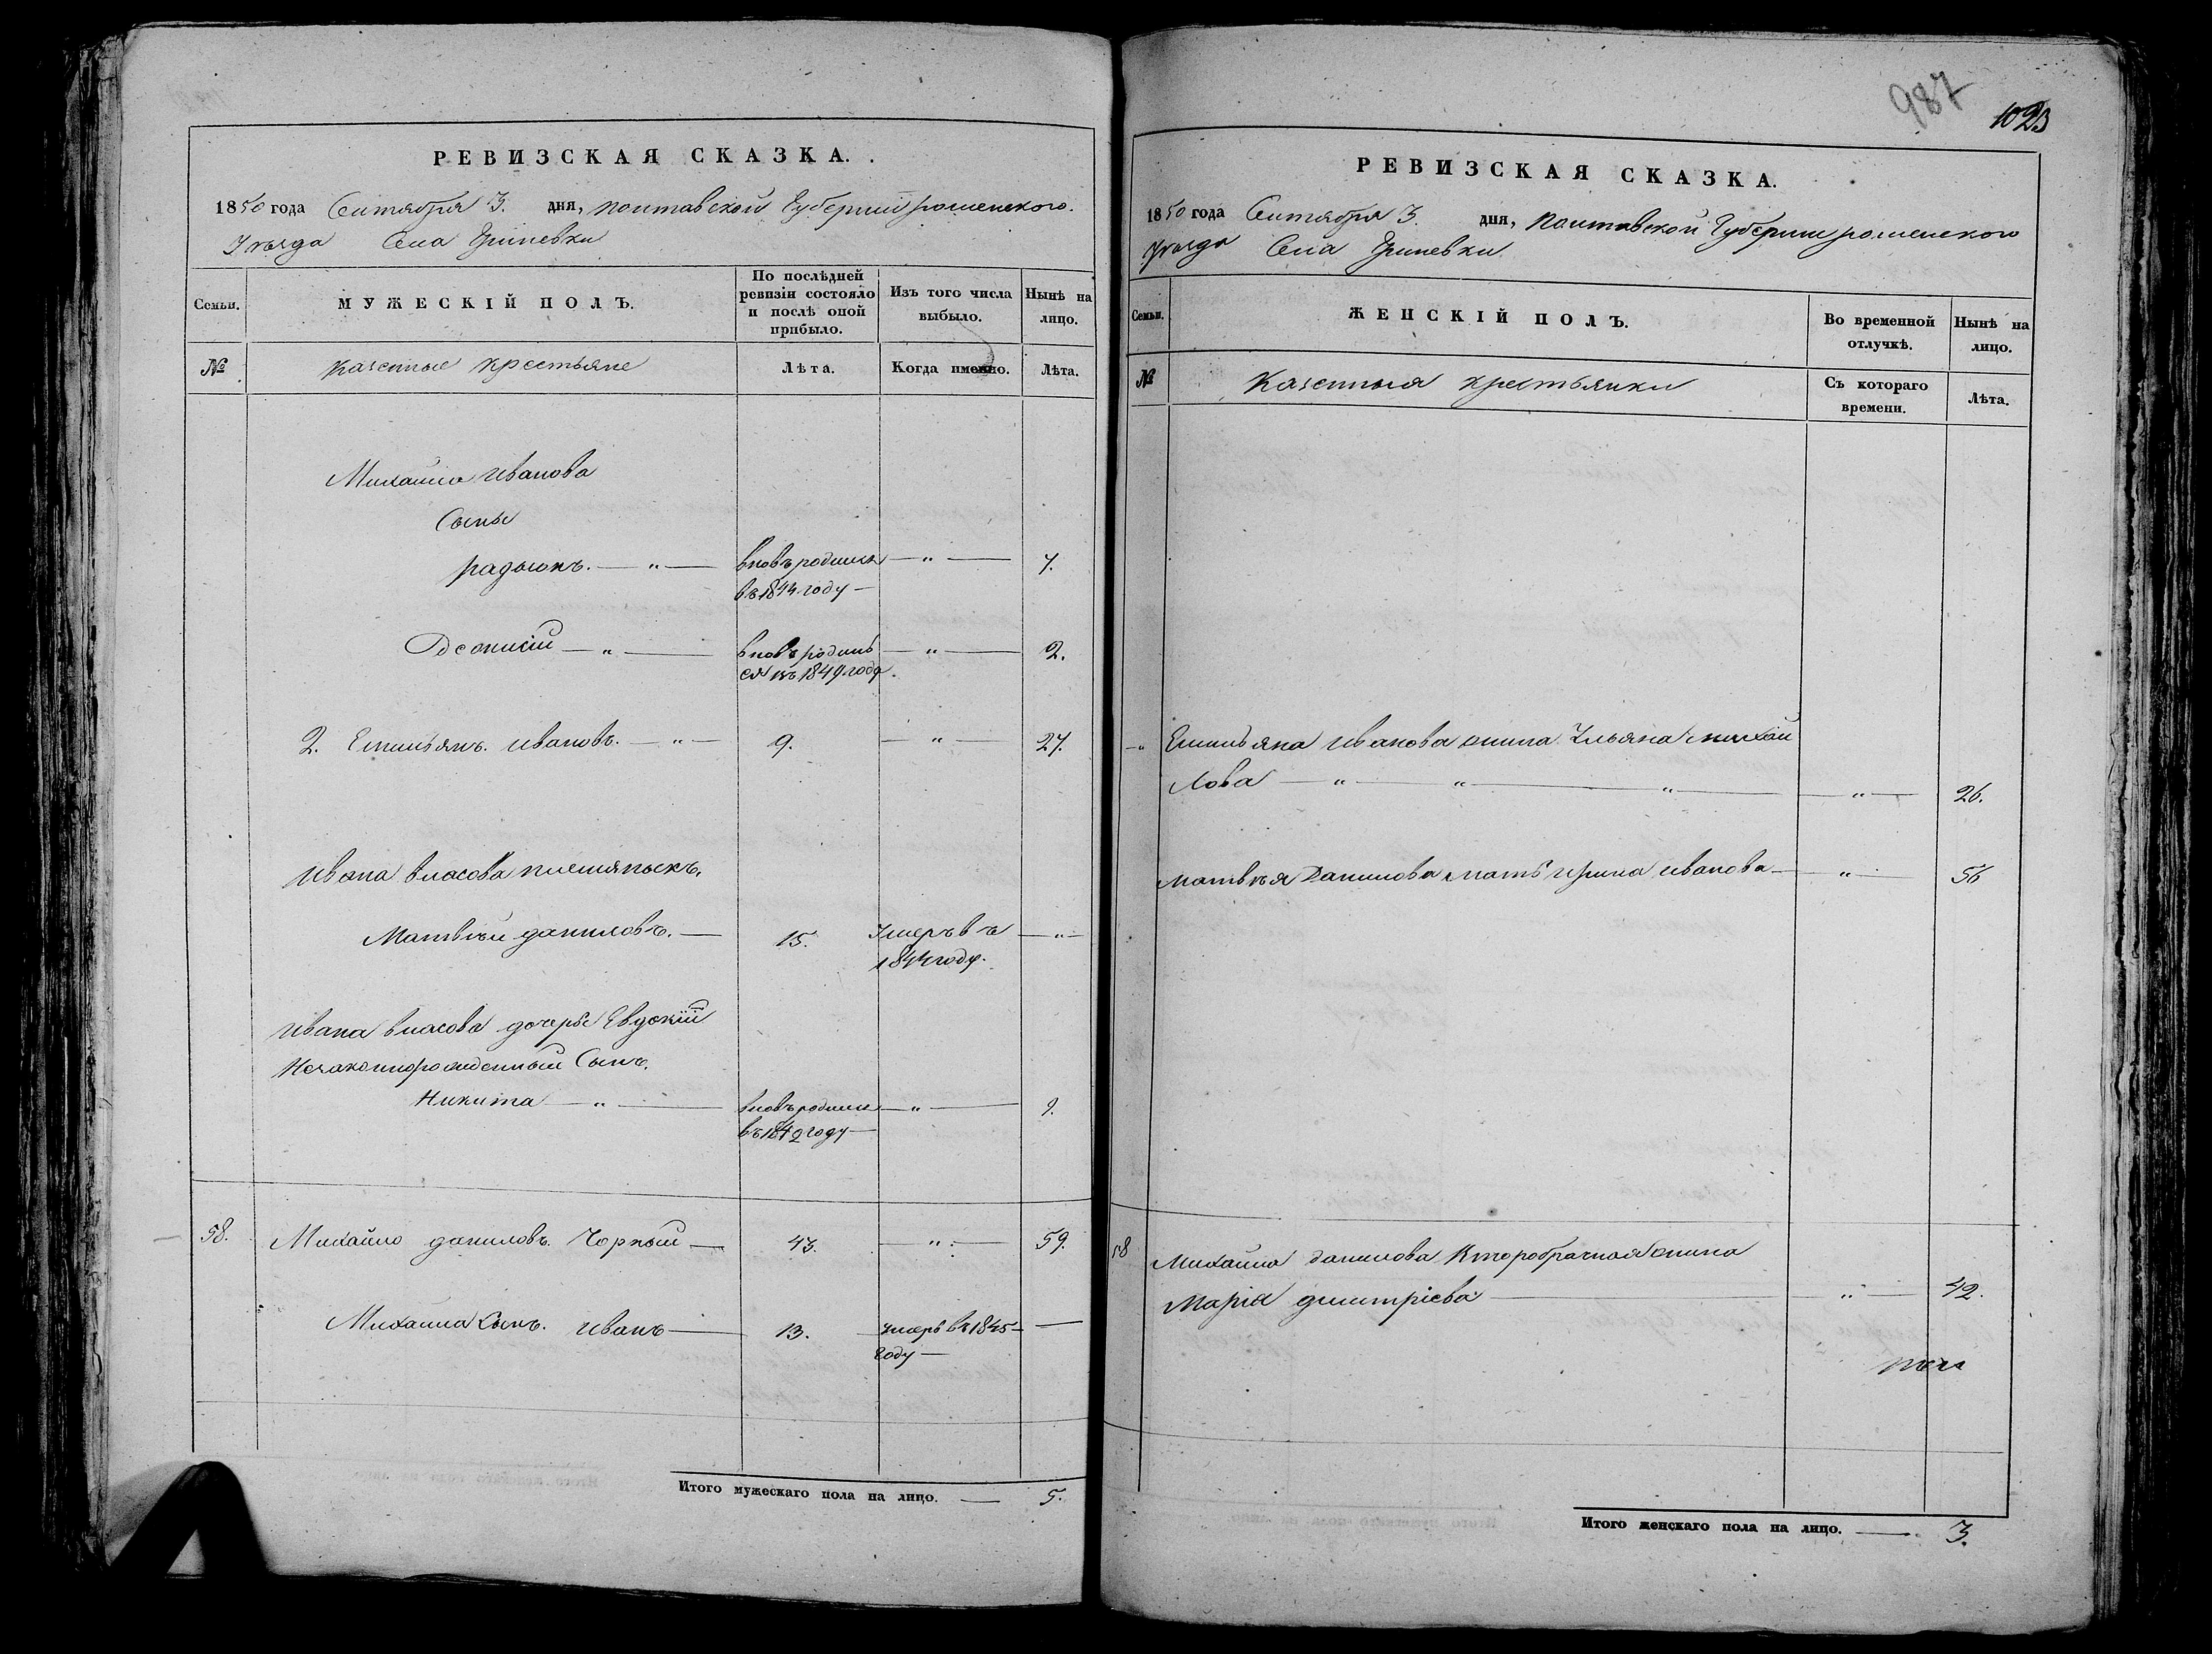 РЕВИЗСКАЯ СКАЗКА.
1850 года Сентября 3. дня, Полтавской Губерніи роменского.
Уѣзда Села Гриневки
Семьи.
МУЖЕСКІЙ ПОЛЪ.
По послѣдней
ревизіи состояло
и послѣ оной
прибыло.
Изъ того числа
выбыло.
Нынѣ на
лицо.
№
Казенные крестьяне
Лѣта.
Когда именно.
Лѣта.
Михайла Иванова
Сыны
радіонъ. — " — вновь родился — " — 7.
въ 1844 году —
— " — вновь родил — " — 2.
ся въ 1849 году.
2. Емельянъ. Ивановъ. — " — 9. — " — 27.
Ивана Власова племяникъ.
Матвѣй даниловъ. — 15. Умеръ въ — " —
1844 году.
Ивана Власова дочери Евдокіи
Незаконнорожденный Сынъ.
Никита — " — вновь родился — " — 9.
въ 1842 году —
58. Михайло даниловъ. Чорный — 43. — " — 59.
Михайла Сынъ. Иванъ — 13. Умеръ въ 1845 — —
году —
Итого мужескаго пола на лицо. — 5.
987
1023
РЕВИЗСКАЯ СКАЗКА.
1850 года Сентября 3 дня, Полтавской Губерніи роменского
Уѣзда Села Гриневки
Семьи.
ЖЕНСКІЙ ПОЛЪ.
Во временной
отлучкѣ.
Нынѣ на
лицо.
№
Казенныя крестьянки
Съ котораго
времени.
Лѣта.
— " Емельяна Иванова жина Ульяна михай
лова — " — " — " — " — 26.
матвѣя Данилова мать Ирина Иванова — " — 56
58 Михайла данилова Второбрачная жина
Марія дмитріева — " — 42.
Итого женскаго пола на лицо. — 3.